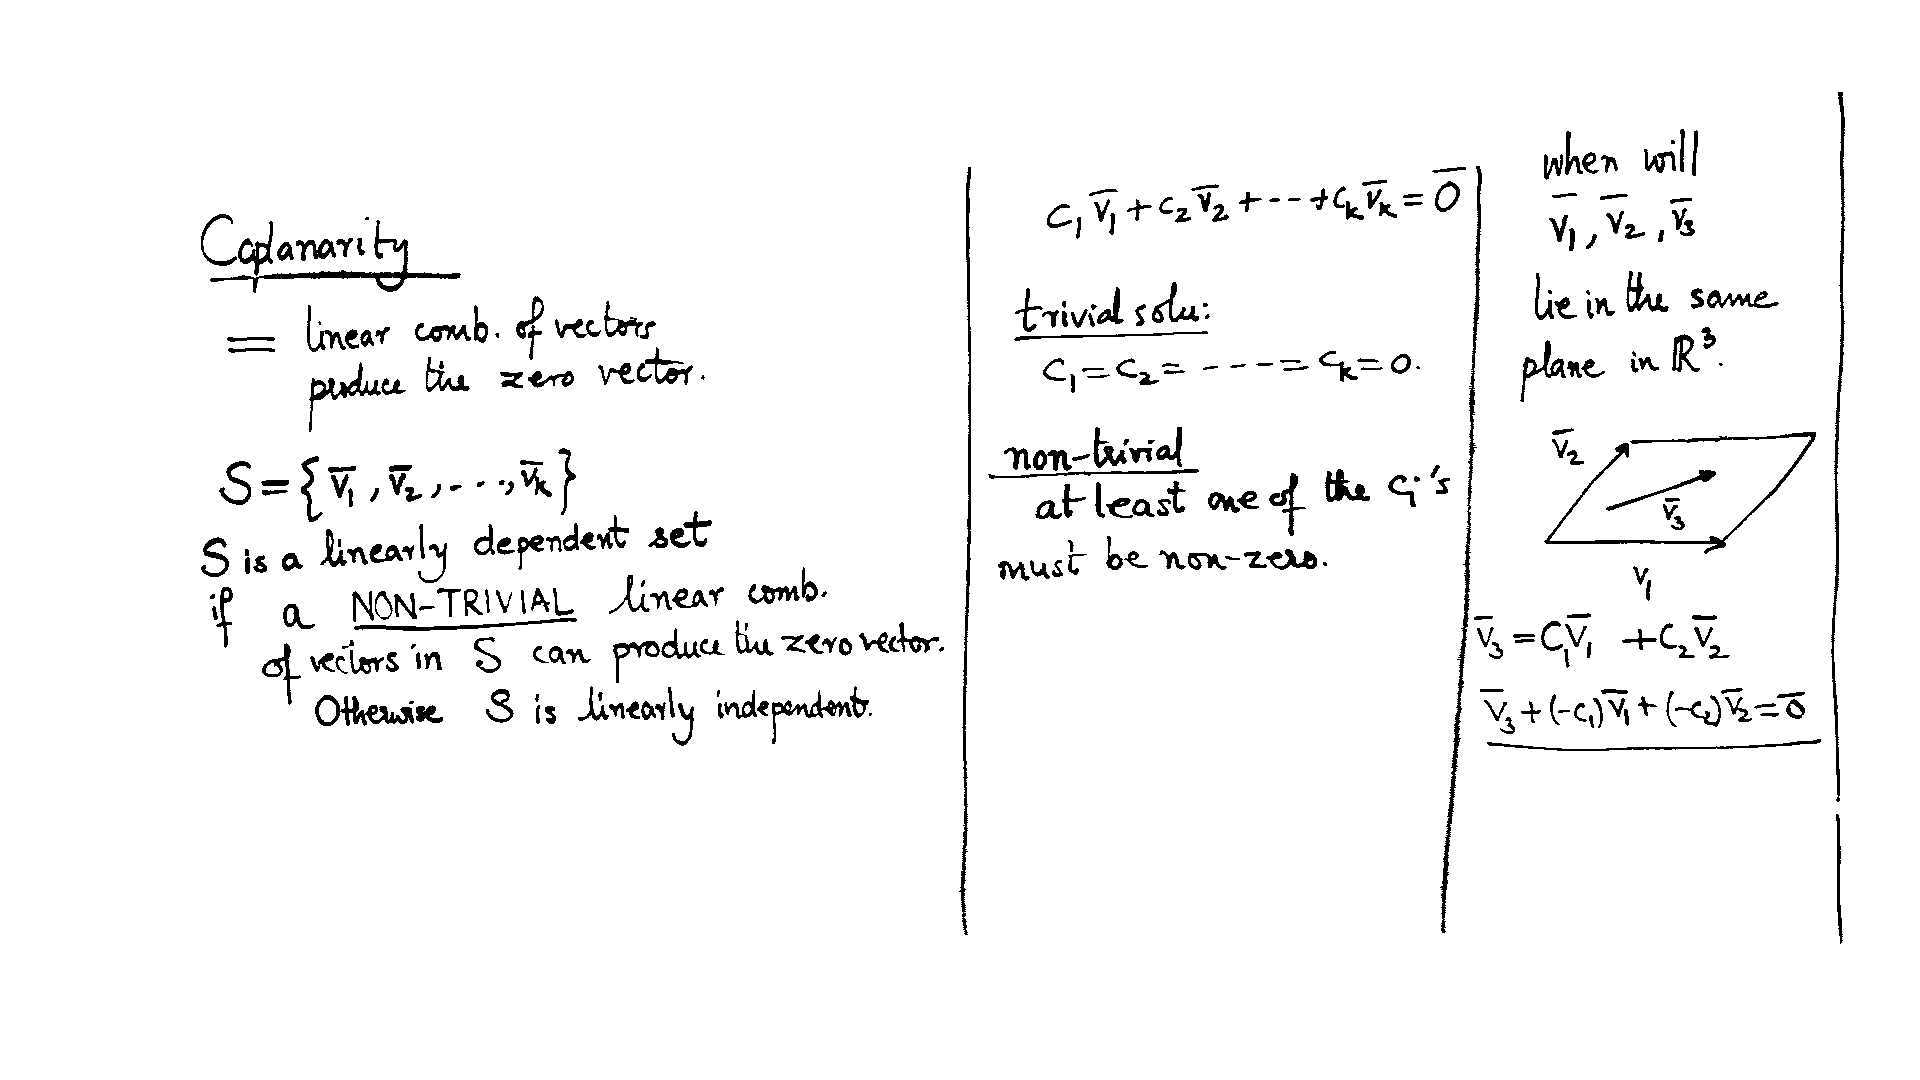 Coplanarity
= linear comb. of vectors
produce the zero vector.
S = { v̅₁ , v̅₂ , - - ., v̅ₖ }
S is a linearly dependent set
if a NON-TRIVIAL linear comb.
of vectors in S can produce the zero vector.
Otherwise S is linearly independent.
c₁ v̅₁ + c₂ v̅₂ + - - - + cₖ v̅ₖ = 0̅
trivial solu:
c₁ = c₂ = - - - - = cₖ = 0.
non-trivial
at least one of the cᵢ's
must be non-zero.
when will
v̅₁ , v̅₂ , v̅₃
lie in the same
plane in ℝ³.
v̅₂
v̅₃
v₁
v̅₃ = C₁v̅₁ + C₂v̅₂
v̅₃ + (-c₁)v̅₁ + (-c₂)v̅₂ = 0̅